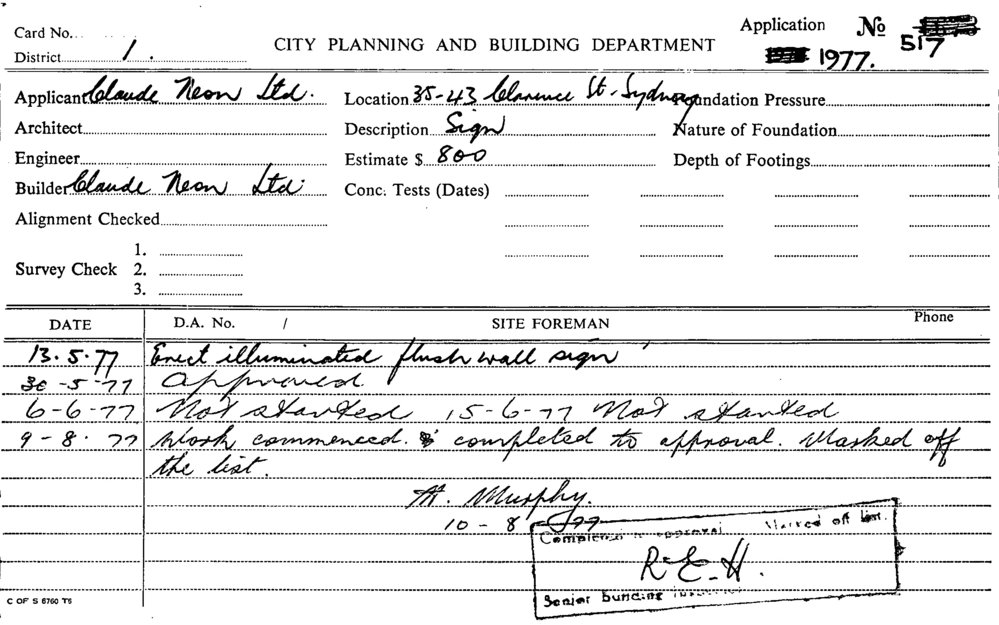 Card No.
District 1.
CITY PLANNING AND BUILDING DEPARTMENT
Application No 517
1977.
Applicant Claude Neon Ltd. Location 35-43 Clarence St. Sydney Foundation Pressure
Architect Description Sign Nature of Foundation
Engineer Estimate $ 800 Depth of Footings
Builder Claude Neon Ltd. Conc. Tests (Dates)
Alignment Checked
Survey Check 1.
2.
3.
DATE D.A. No. / SITE FOREMAN Phone
13.5.77 Erect illuminated flush wall sign
30-5-77 Approved
6-6-77 Not started 15-6-77 Not started
9-8-77 Work commenced. & completed to approval. Marked off
the list.
Murphy.
10-8-77
Completed to approval Marked off list.
R.E.H.
Senior Building Inspector
C OF S 6760 T6